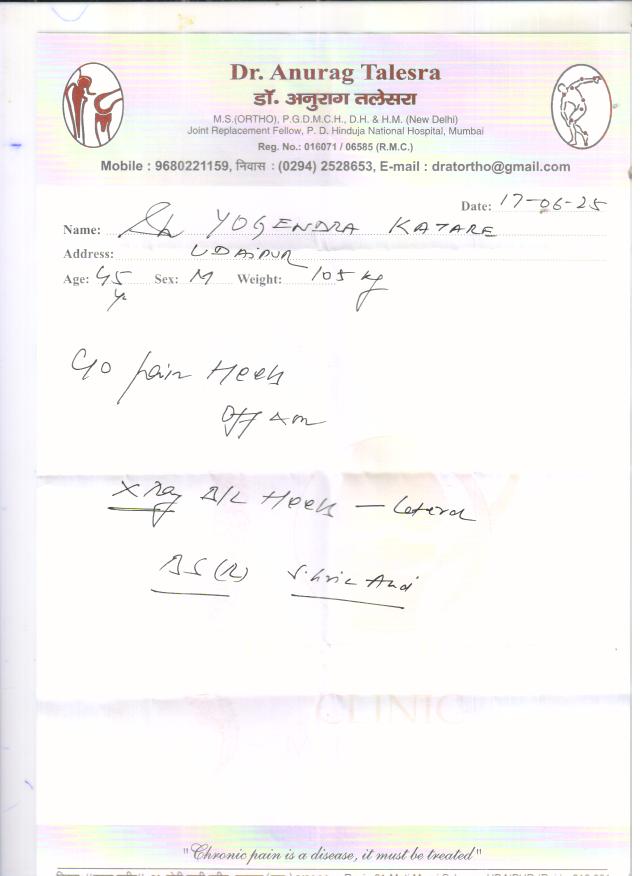 Dr. Anurag Talesra
डॉ. अनुराग तलेसरा
M.S.(ORTHO), P.G.D.M.C.H., D.H. & H.M. (New Delhi)
Joint Replacement Fellow, P. D. Hinduja National Hospital, Mumbai
Reg. No.: 016071 / 06585 (R.M.C.)
Mobile : 9680221159, निवास : (0294) 2528653, E-mail : dratortho@gmail.com
Date: 17-06-25
Name: Sh YOGENDRA KATARE
Address: UDAIPUR
Age: 45 yr Sex: M Weight: 105 kg
C/o pain Heels
X Ray B/L Heels — Lateral
BS (R)
CLINIC
"Chronic pain is a disease, it must be treated"